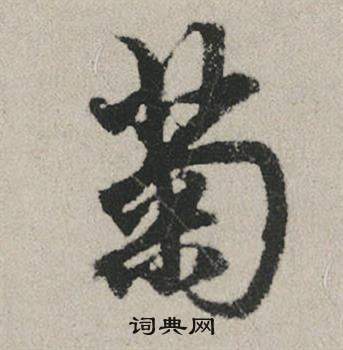 菊
词典网